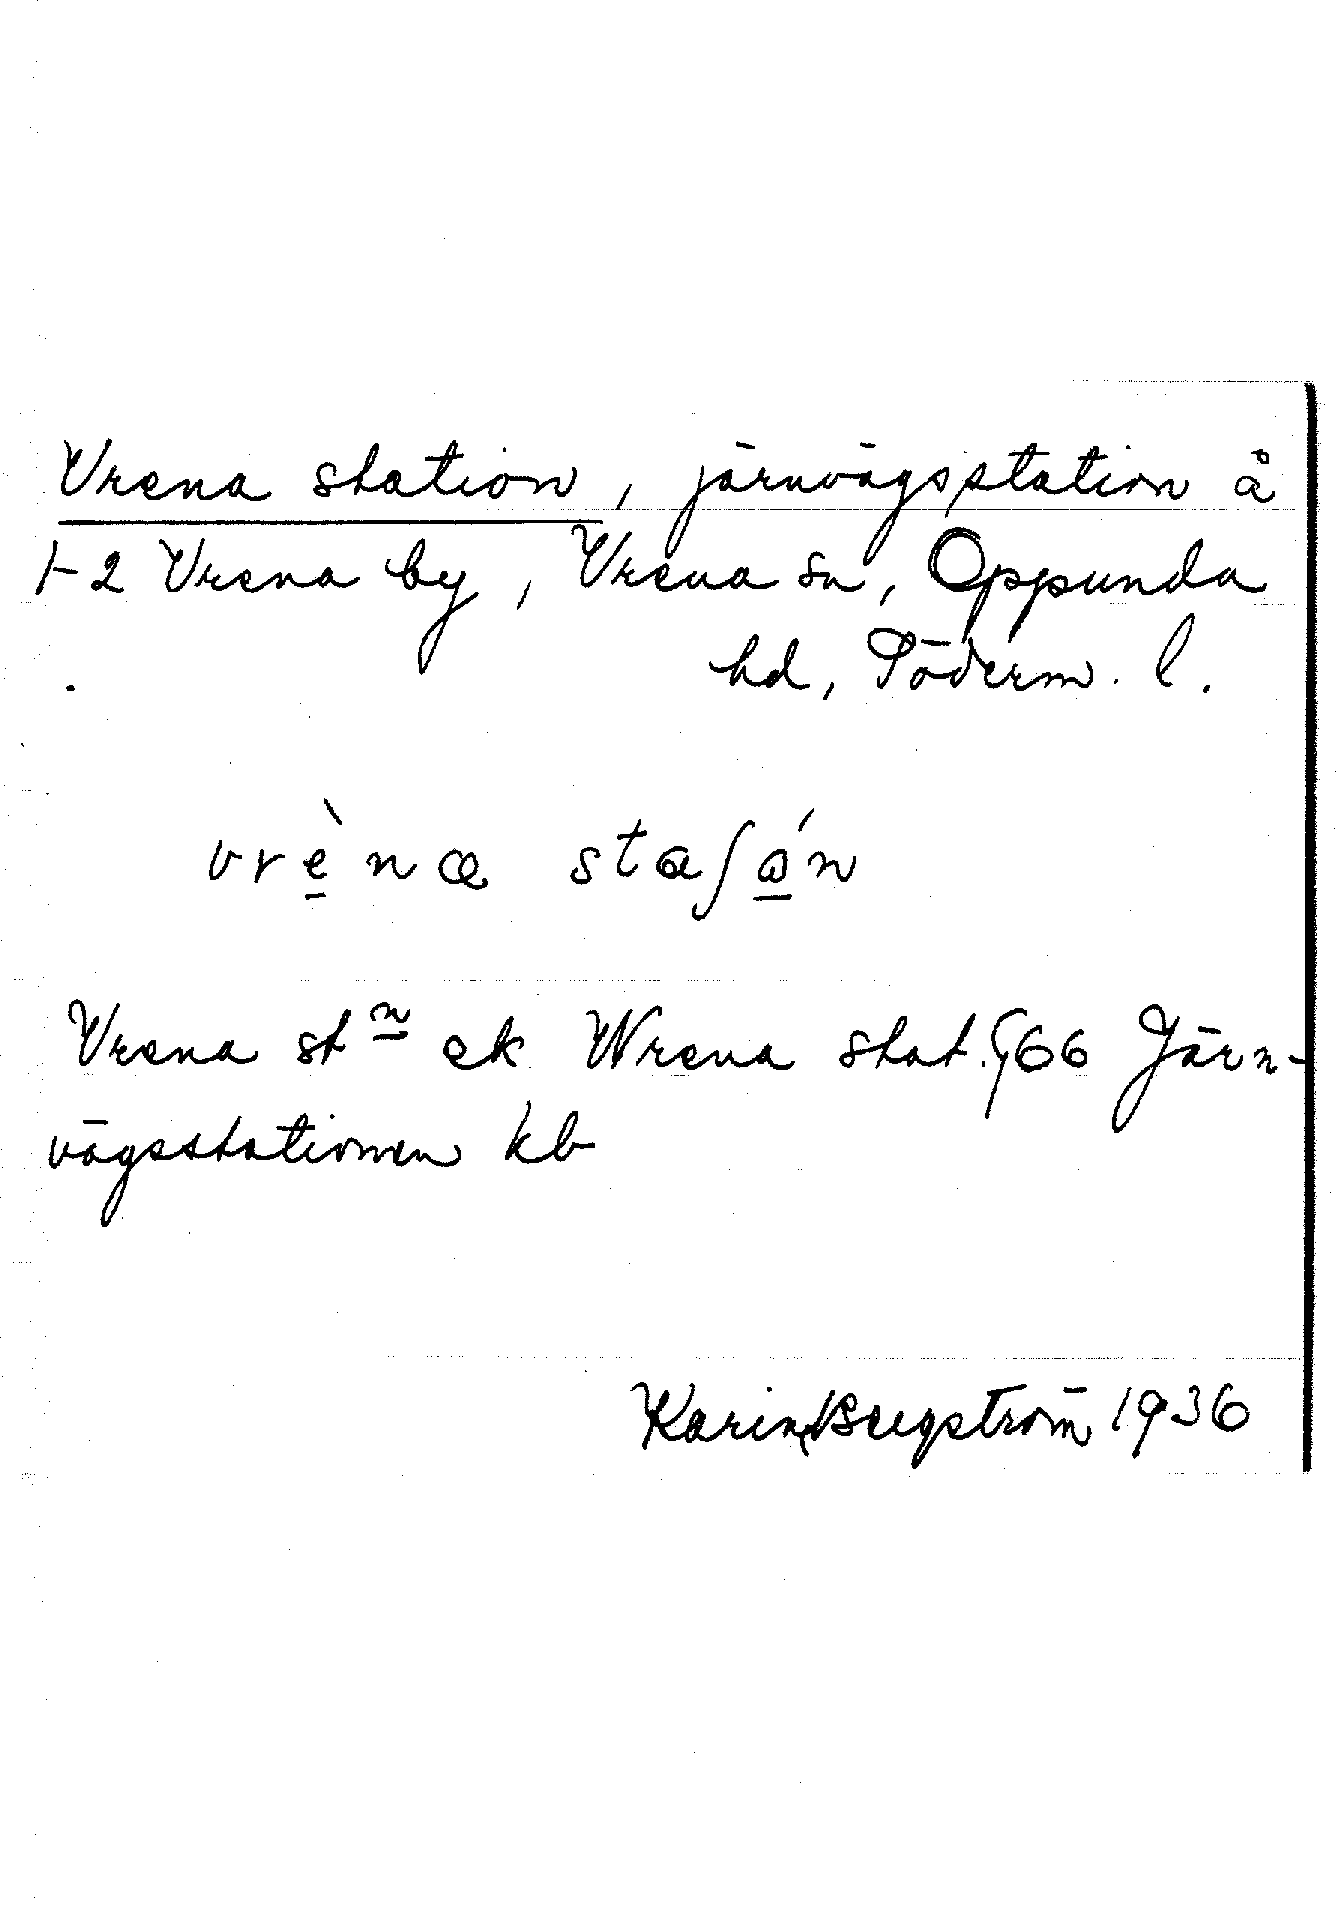 Vrena station, järnvägsstation å
1-2 Vrena by, Vrena sn, Oppunda
hd, Söderm. l.
vrèna staʃɷ́n
Vrena stn ek Wrena stat. §66 Järn-
vägsstationen kb
Karin Bergström 1936